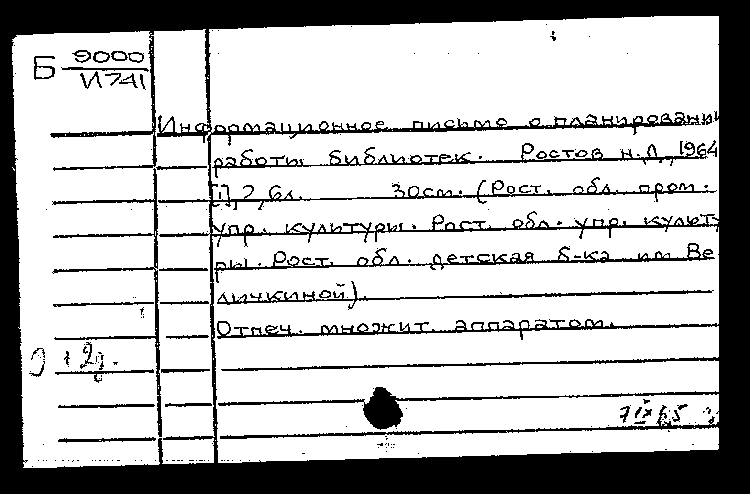 Б 9000
И741
Информационное письмо о планировании
работы библиотек. Ростов н.Д, 1964
[1], 2, 6л. 30см. (Рост. обл. пром.
упр. культуры. Рост. обл. упр. культу
ры. Рост. обл. детская б-ка им Ве
личкиной).
Отпеч. множит. аппаратом.
2д.
7 IX 65